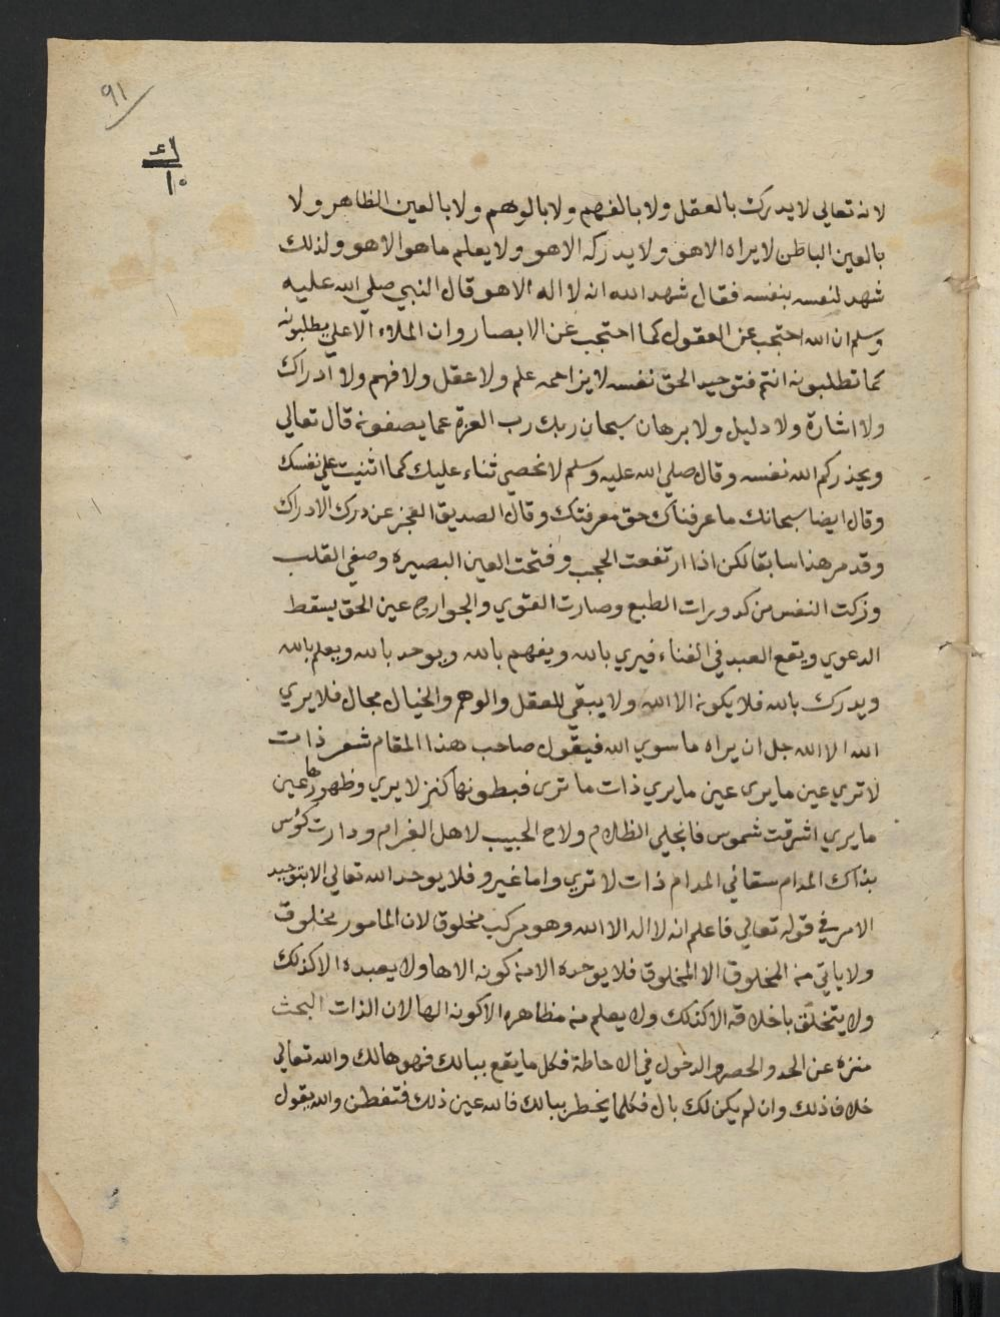 ٩١
ك
١٠
لانه تعالى لا يدرك بالعقل ولا بالفهم ولا بالوهم ولا بالعين الظاهر ولا
بالعين الباطن لا يراه الا هو ولا يدركه الا هو ولا يعلم ما هو الا هو ولذلك
شهد لنفسه بنفسه فقال شهد الله انه لا اله الا هو قال النبي صلي الله عليه
وسلم ان الله احتجب عن العقول كما احتجب عن الابصار وان الملاء الاعلي يطلبونه
كما تطلبونه انتم فتوحيد الحق نفسه لا يزاحمه علم ولا عقل ولا فهم ولا ادراك
ولا اشارة ولا دليل ولا برهان سبحان ربك رب العزة عما يصفونه قال تعالي
ويحذركم الله نفسه وقال صلي الله عليه وسلم لا نحصي ثناء عليك كما اثنيت علي نفسك
وقال ايضا سبحانك ما عرفناك حق معرفتك وقال الصديق العجز عن درك الادراك
وقد مر هذا سابقا لكن اذا ارتفعت الحجب وفتحت العين البصيره وصفي القلب
وزكت النفس من كدورات الطبع وصارت القوي والجوارح عين الحق يسقط
الدعوي ويقع العبد في الفناء فيري بالله ويفهم بالله ويوحد بالله ويعلم بالله
ويدرك بالله فلا يكونه الا الله ولا يبقي للعقل والوهم والخيال مجال فلا يري
الله الا الله جل ان يراه ما سوي الله فيقول صاحب هذا المقام شعر ذات
لا تري عين ما يري عين ما يري ذات ما تري فبطونها كنز لا يري وظهورها عين
ما يري اشرقت شموس فانجلي الظلام ولاح الحبيب لاهل الغرام ودارت كؤس
بذاك المدام سقاني المدام ذات لا تري واما غيره فلا يوحد الله تعالي الا بتوحيد
الامر في قوله تعالي فاعلم انه لا اله الا الله وهو مركب مخلوق لان المامور مخلوق
ولا ياتي منه المخلوق الا المخلوق فلا يوحده الا منه كونه الاها ولا يعبده الا كذلك
ولا يتخلق باخلاقه الا كذلك ولا يعلم منه مظاهره الا كونه الها لان الذات البحث
منزه عن الحد والحصر والدخول في الاحاطة فكل ما يقع ببالك فهو هالك والله تعالي
خلاف ذلك وان لم يكن لك بال فكلما يخطر ببالك فالله عين ذلك فتفطن والله يقول